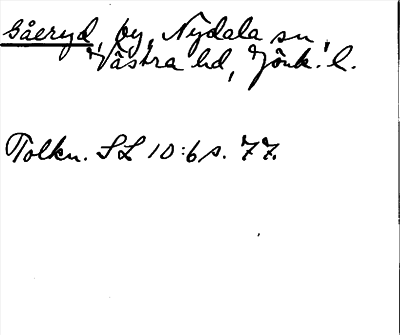 Gåeryd, by, Nydala sn,
Västra hd, Jönk. l.
Tolkn. SL 10:6 s. 77.